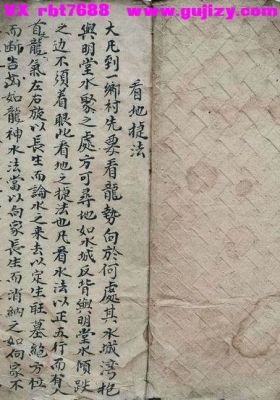 VX rbt7688
www.gujizy.com
看地捷法
大凡到一鄉村先要看龍勢向於何處其水城灣抱
與明堂水聚之處方可尋地如水城反背與明堂水傾跌
之边不須着眼此看地之捷法也凡看水法以正五行而有人
自龍氣左右旋以長生而論水之来去以定生旺墓絕方位
而断吉凶如龍神水法當以向家長生而消納之如向家不